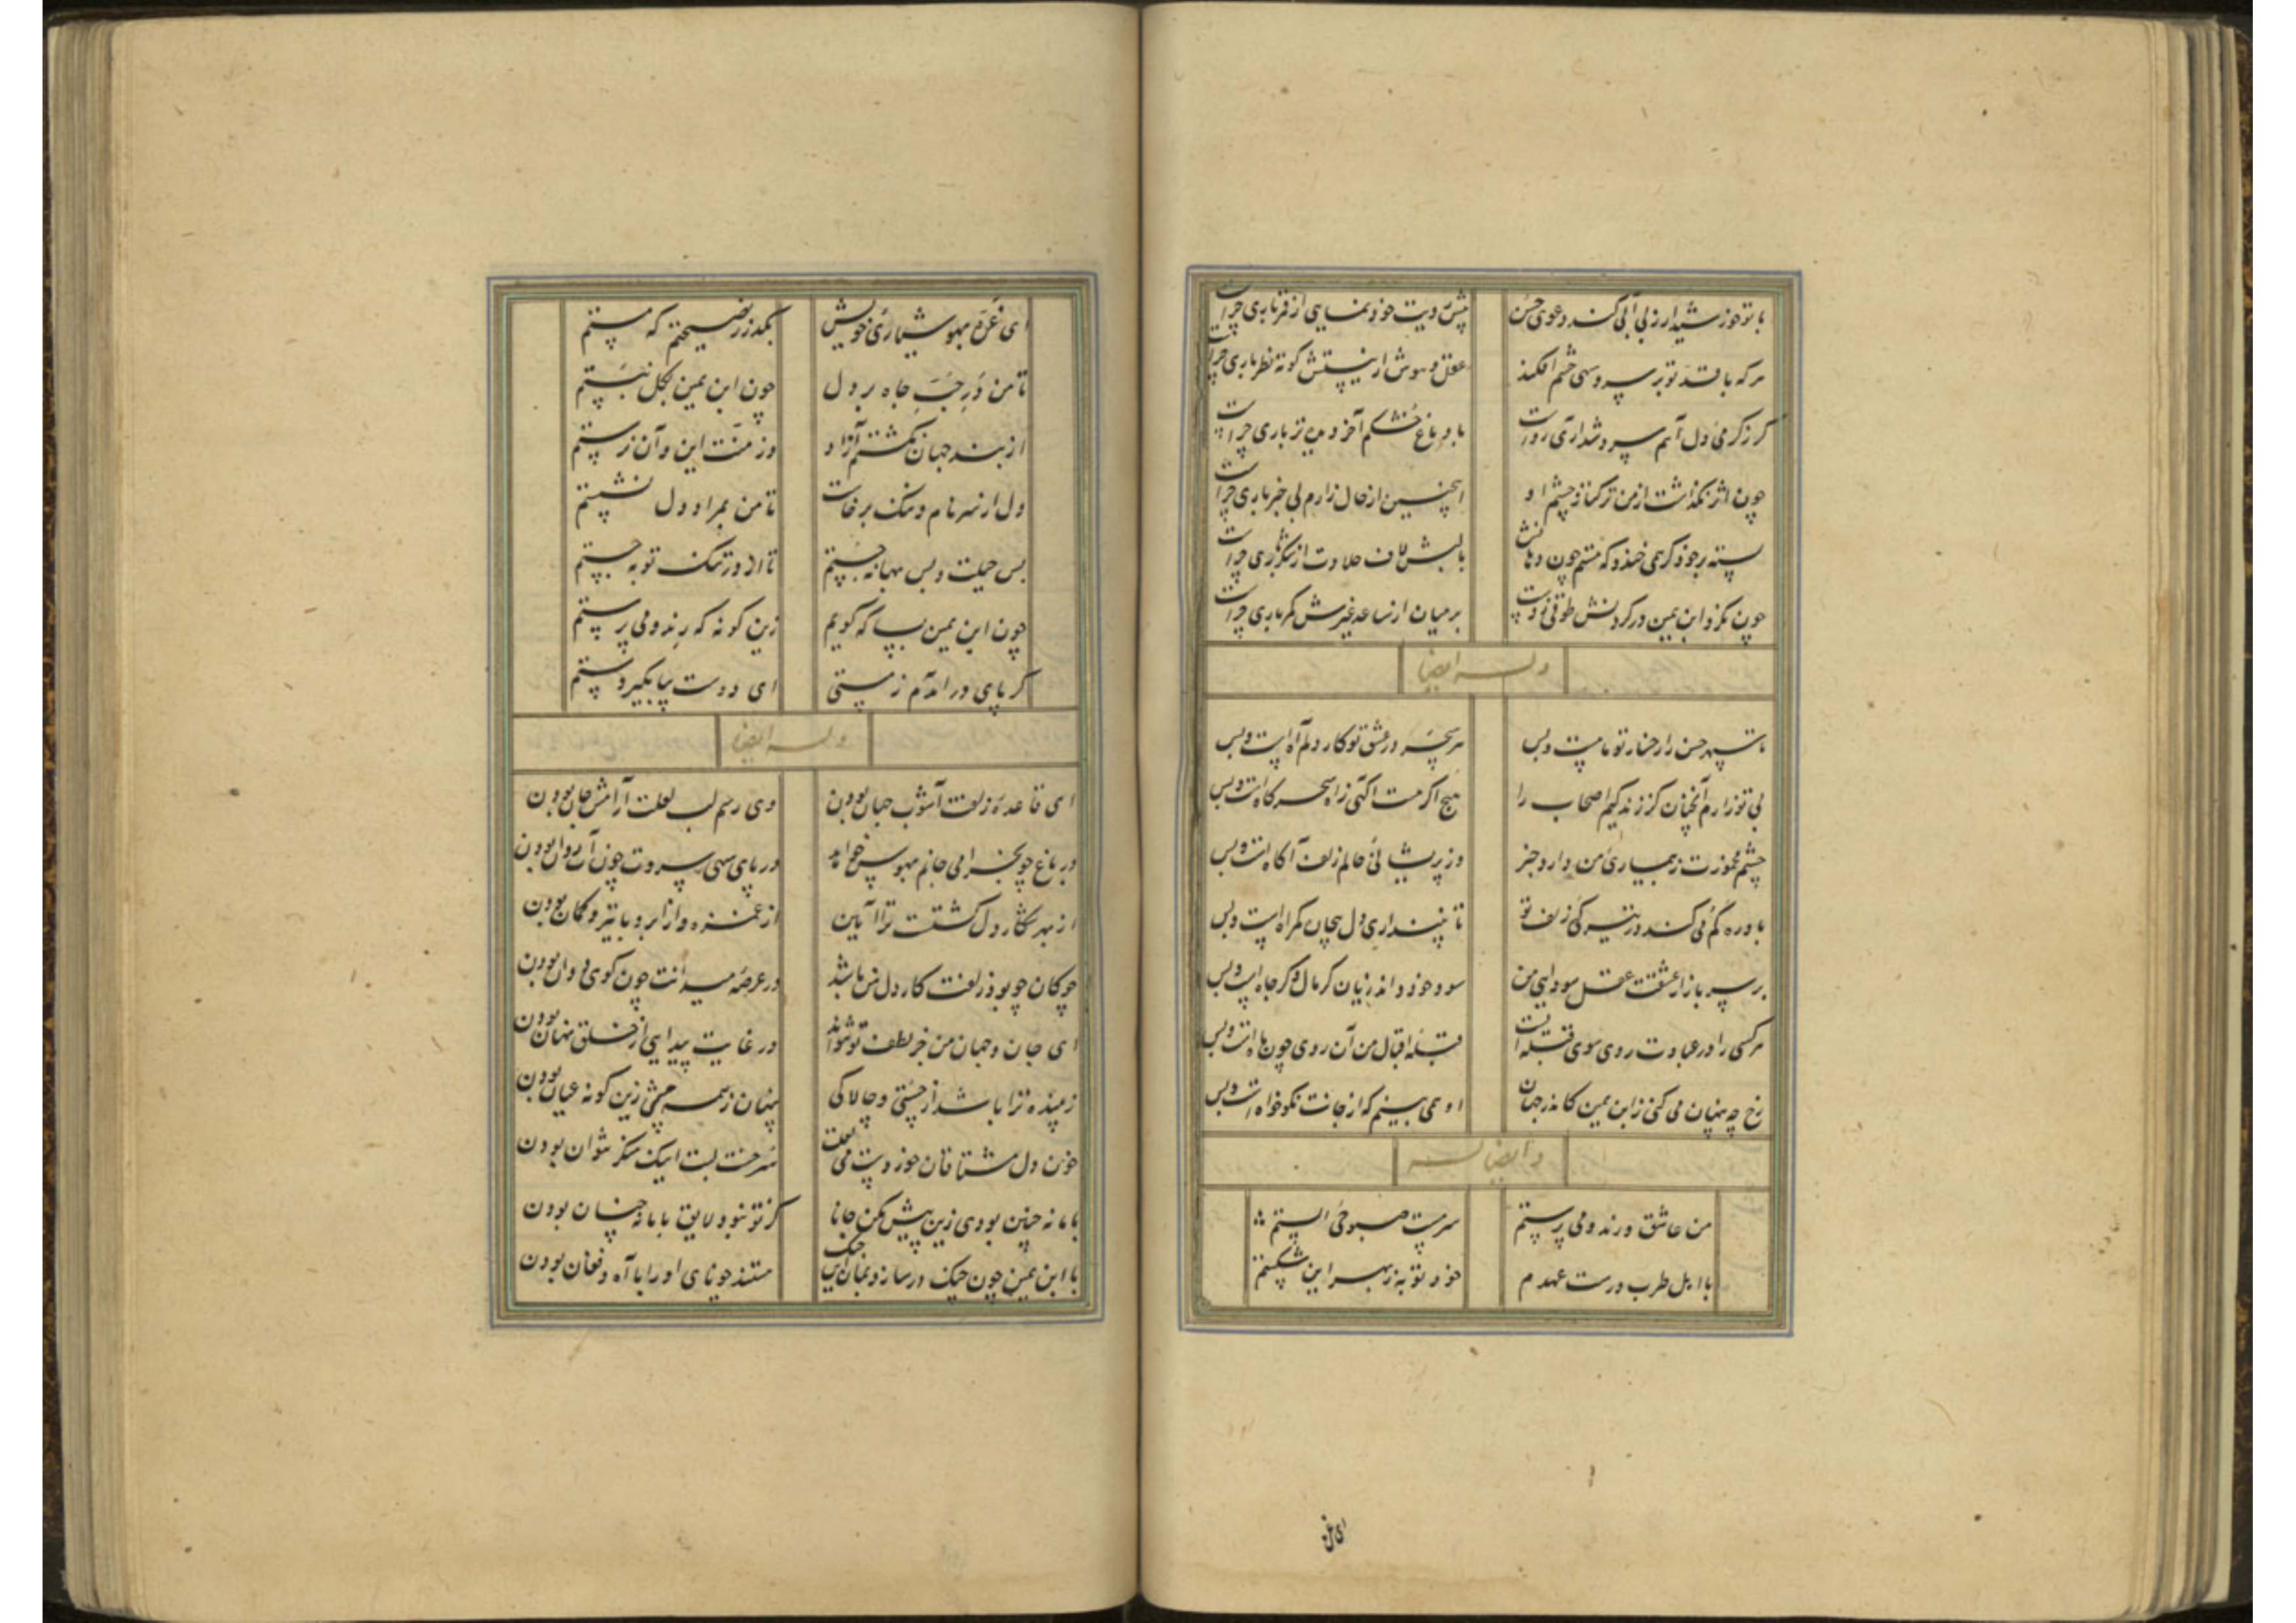 با تو خورشید ار ز بی آبی کند دعوی حسن پیش رویت خود نمایی از قمر باری چراست
هر که با قد تو بر سرو سهی چشم افکند عقل و هوش از نیستش کوته نظر باری چراست
گر ز گرمی دل آهم سرد شد آری رواست با دماغ خشکم آخر دیده تر باری چراست
چون اثر نگذاشت از من ترکتاز چشم او اینچنین از حال زارم بی خبر باری چراست
پسته بر خود گر همی خندد که هستم چون دهانش با لبش لاف حلاوت از شکر باری چراست
چون نکرد ابن یمین در گردنش طوقی ز دست بر میان از ساعد غیرش کمر باری چراست
وله ایضا
تا سپهر حسن را رخسار تو ماهست و بس هر سحر در عشق تو کار دلم آهست و بس
بی تو زارم آنچنان کز زندگیم اصحاب را هیچ اگر هست آگهی ز آه سحرگاهست و بس
چشم مخمورت ز بیماری من دارد خبر وز پریشانی حالم زلفت آگاهست و بس
باد ره گم می کند در تیرگی زلف تو تا نپنداری دل بیجان گمراهست و بس
بر سر بازار عشقت عقل سودایی من سود خود داند زیان گر مال و گر جاهست و بس
هر کسی را در عبادت روی سوی قبله ایست قبله اقبال من آن روی چون ماهست و بس
رخ چه پنهان می کنی ز ابن یمین کاندر جهان او همی بینم که از جانت نکوخواهست و بس
وایضا له
من عاشق و رند و می پرستم سرمست صبوحی الستم
با اهل طرب درست عهدم خود توبه ز بهر این شکستم
ای غره
ای غره بهوشیاری خویش بگذر ز نصیحتم که مستم
تا من ز در جب جاه بر دل چون ابن یمین بکل ببستم
از بند جهان گشتم آزاد وز منت این و آن برستم
دل از سر نام و ننگ برخاست تا من بمراد دل نشستم
بس حیلت و بس بهانه جستم تا از در تنگ توبه جستم
چون ابن یمین بسا که گویم زین گونه که رند و می پرستم
گر پای در آمدم ز پستی ای دوست بیا بگیر دستم
وله ایضا
ای قاعده زلفت آشوب جهان بودن وی رسم لب لعلت آرامش جان بودن
در باغ چو بخرامی جانم بهوس خواهد در پای سهی سروت چون آب روان بودن
از بهر شکار دل گشتست ترا آیین از غمزه و از ابرو با تیر و کمان بودن
چوگان چو بود زلفت کار دل من باشد در عرصه میدانت چون گوی دوان بودن
ای جان و جهان من جز لطف تو نتواند در غایت پیدایی از خلق نهان بودن
زیبنده ترا باشد از چستی و چالاکی پنهان ز همه چشمی زین گونه عیان بودن
خون دل مشتاقان خوردست می لعلت سرخست لبت اینک منکر نتوان بودن
با ما نه چنین بودی زین پیش مکن جانا کز تو نبود لایق با ما نه چنان بودن
با ابن یمین چون چنگ در ساز و بمان این جنگ مپسند چو نای او را با آه و فغان بودن